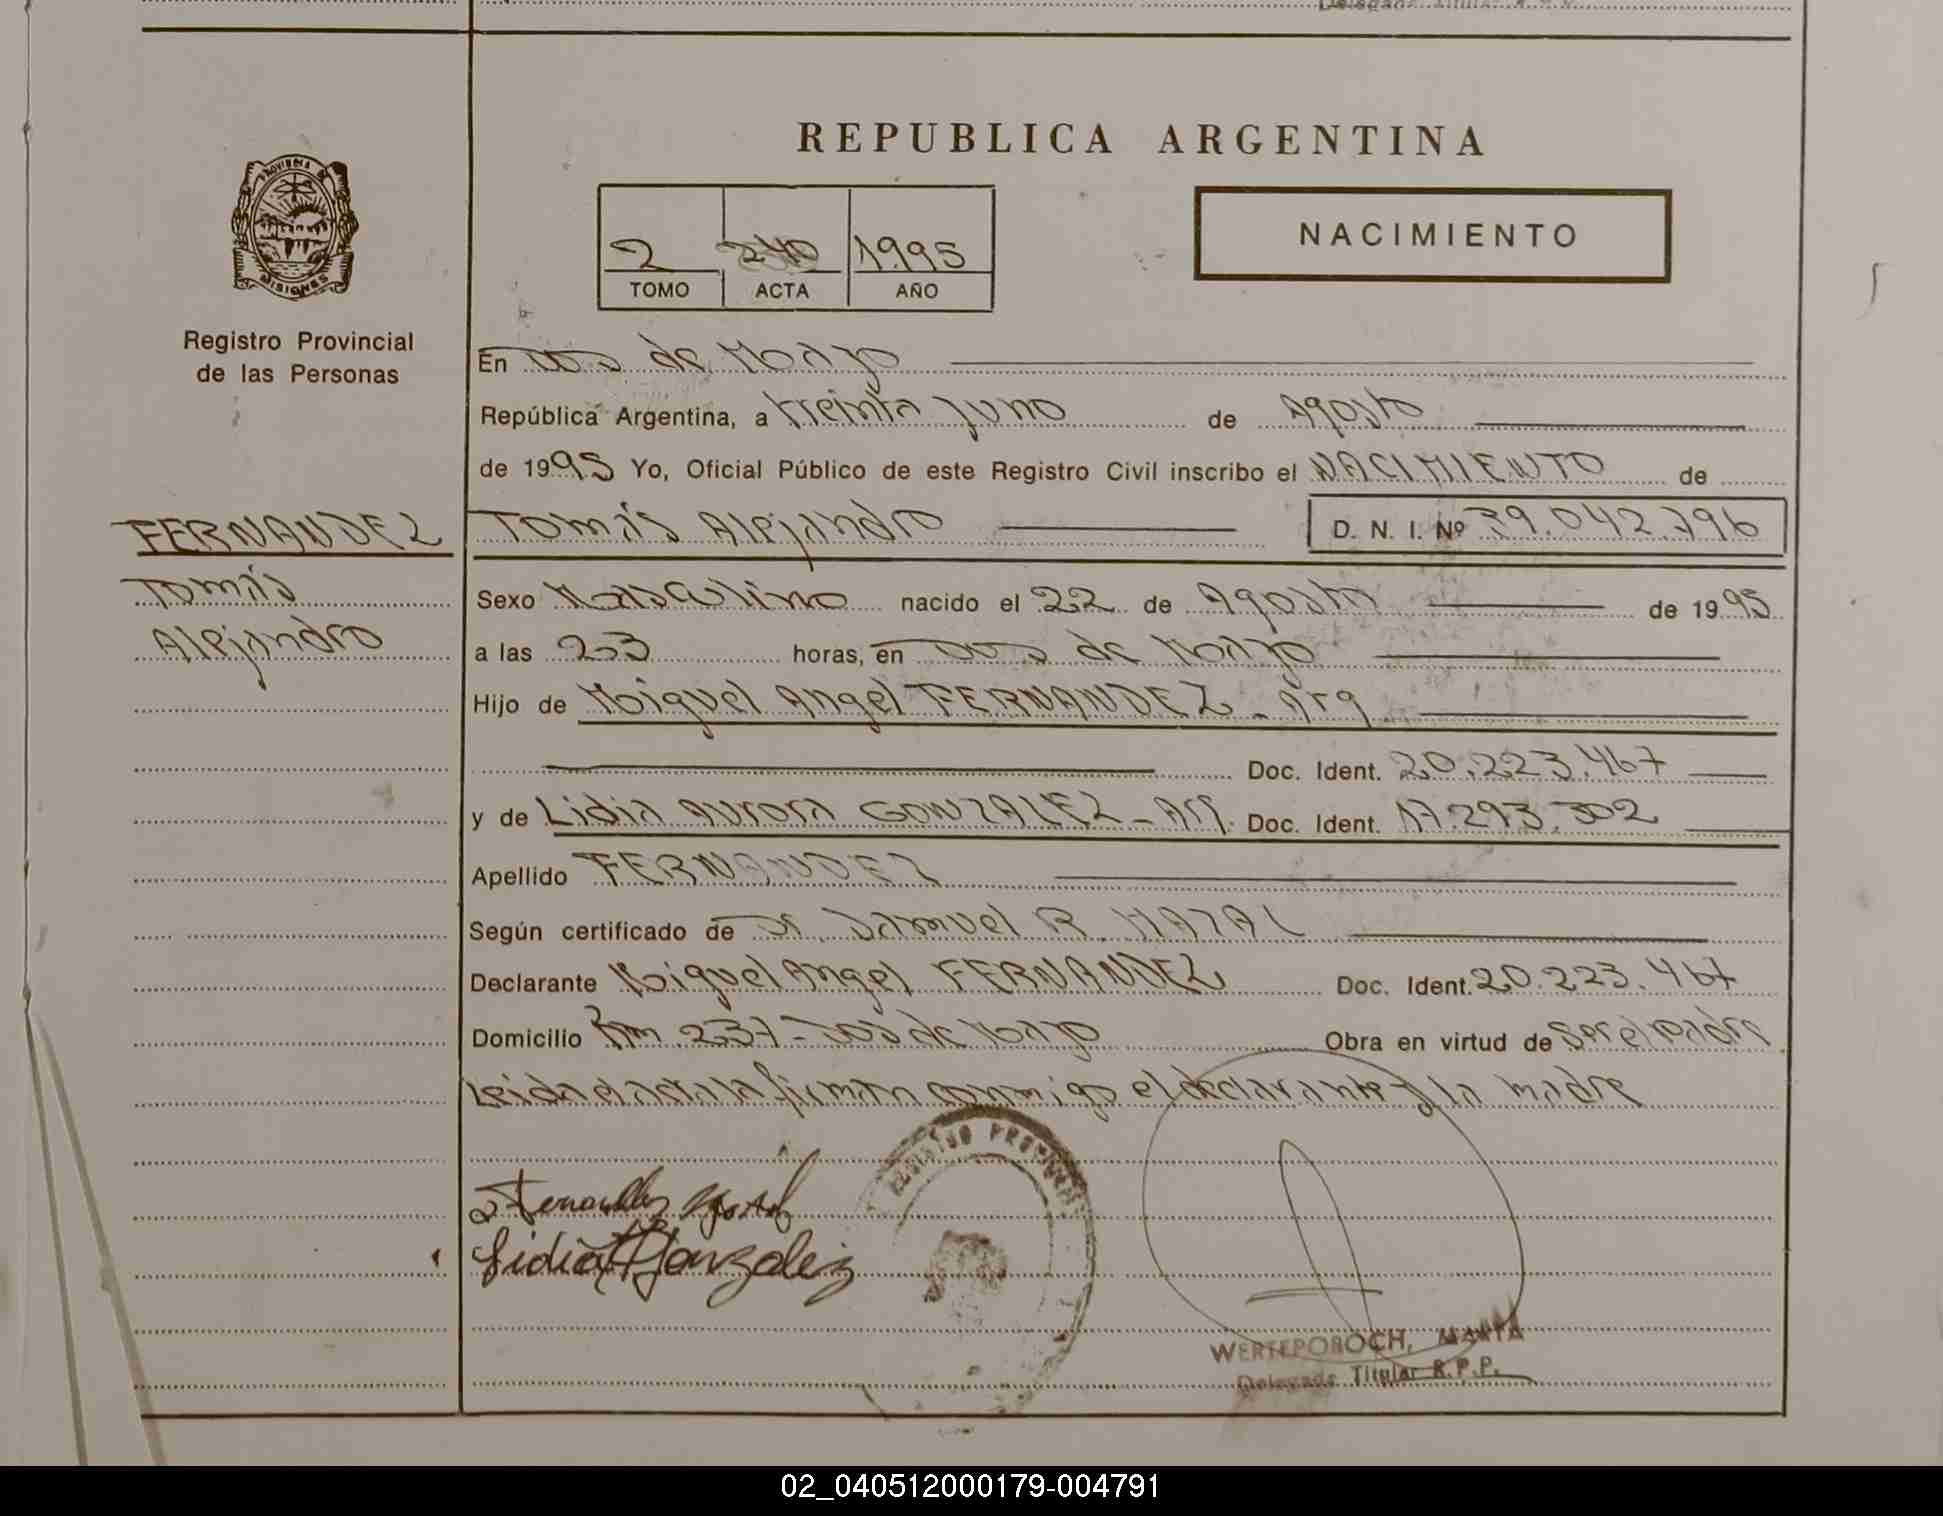 REPUBLICA ARGENTINA
PROVINCIA DE
MISIONES
Registro Provincial
de las Personas
2 240 1995
TOMO ACTA AÑO
NACIMIENTO
En Dos de Mayo
República Argentina, a treinta y uno de Agosto
de 1995 Yo, Oficial Público de este Registro Civil inscribo el NACIMIENTO de
FERNANDEZ
Tomás
Alejandro
Tomás Alejandro D. N. I. Nº 39.042.796
Sexo Masculino nacido el 22 de Agosto de 1995
a las 23 horas, en Dos de Mayo
Hijo de Miguel Angel FERNANDEZ - Arg
Doc. Ident. 20.223.467
y de Lidia Aurora GONZALEZ - Arg. Doc. Ident. 17.293.302
Apellido FERNANDEZ
Según certificado de Dr. Samuel R.
Declarante Miguel Angel FERNANDEZ Doc. Ident. 20.223.467
Domicilio Km. 237 - Dos de Mayo Obra en virtud de ser el padre
Leida el acta la firman conmigo el declarante y la madre
Fernandez
Lidia A Gonzalez
REGISTRO PROVINCIAL
WERTEPOROCH, MARTA
Delegada Titular R.P.P.
02_040512000179-004791